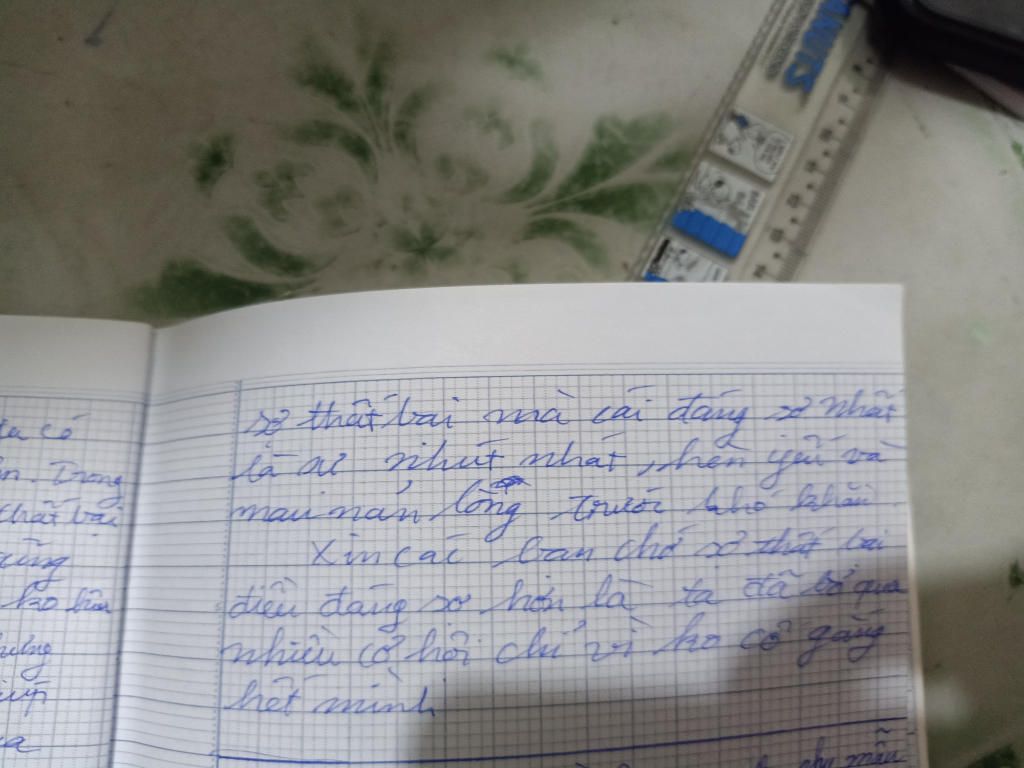 ta có
Trong
thất bại
cũng
ko
sợ thất bai mà cái đáng sợ nhất
là sự nhút nhát, hèn yếu và
mau nản lòng trước khó khăn
Xin các bạn chớ sợ thất bại
điều đáng sợ hơn là ta đã bỏ qua
nhiều cơ hội chỉ vì ko cố gắng
hết mình
mẫu